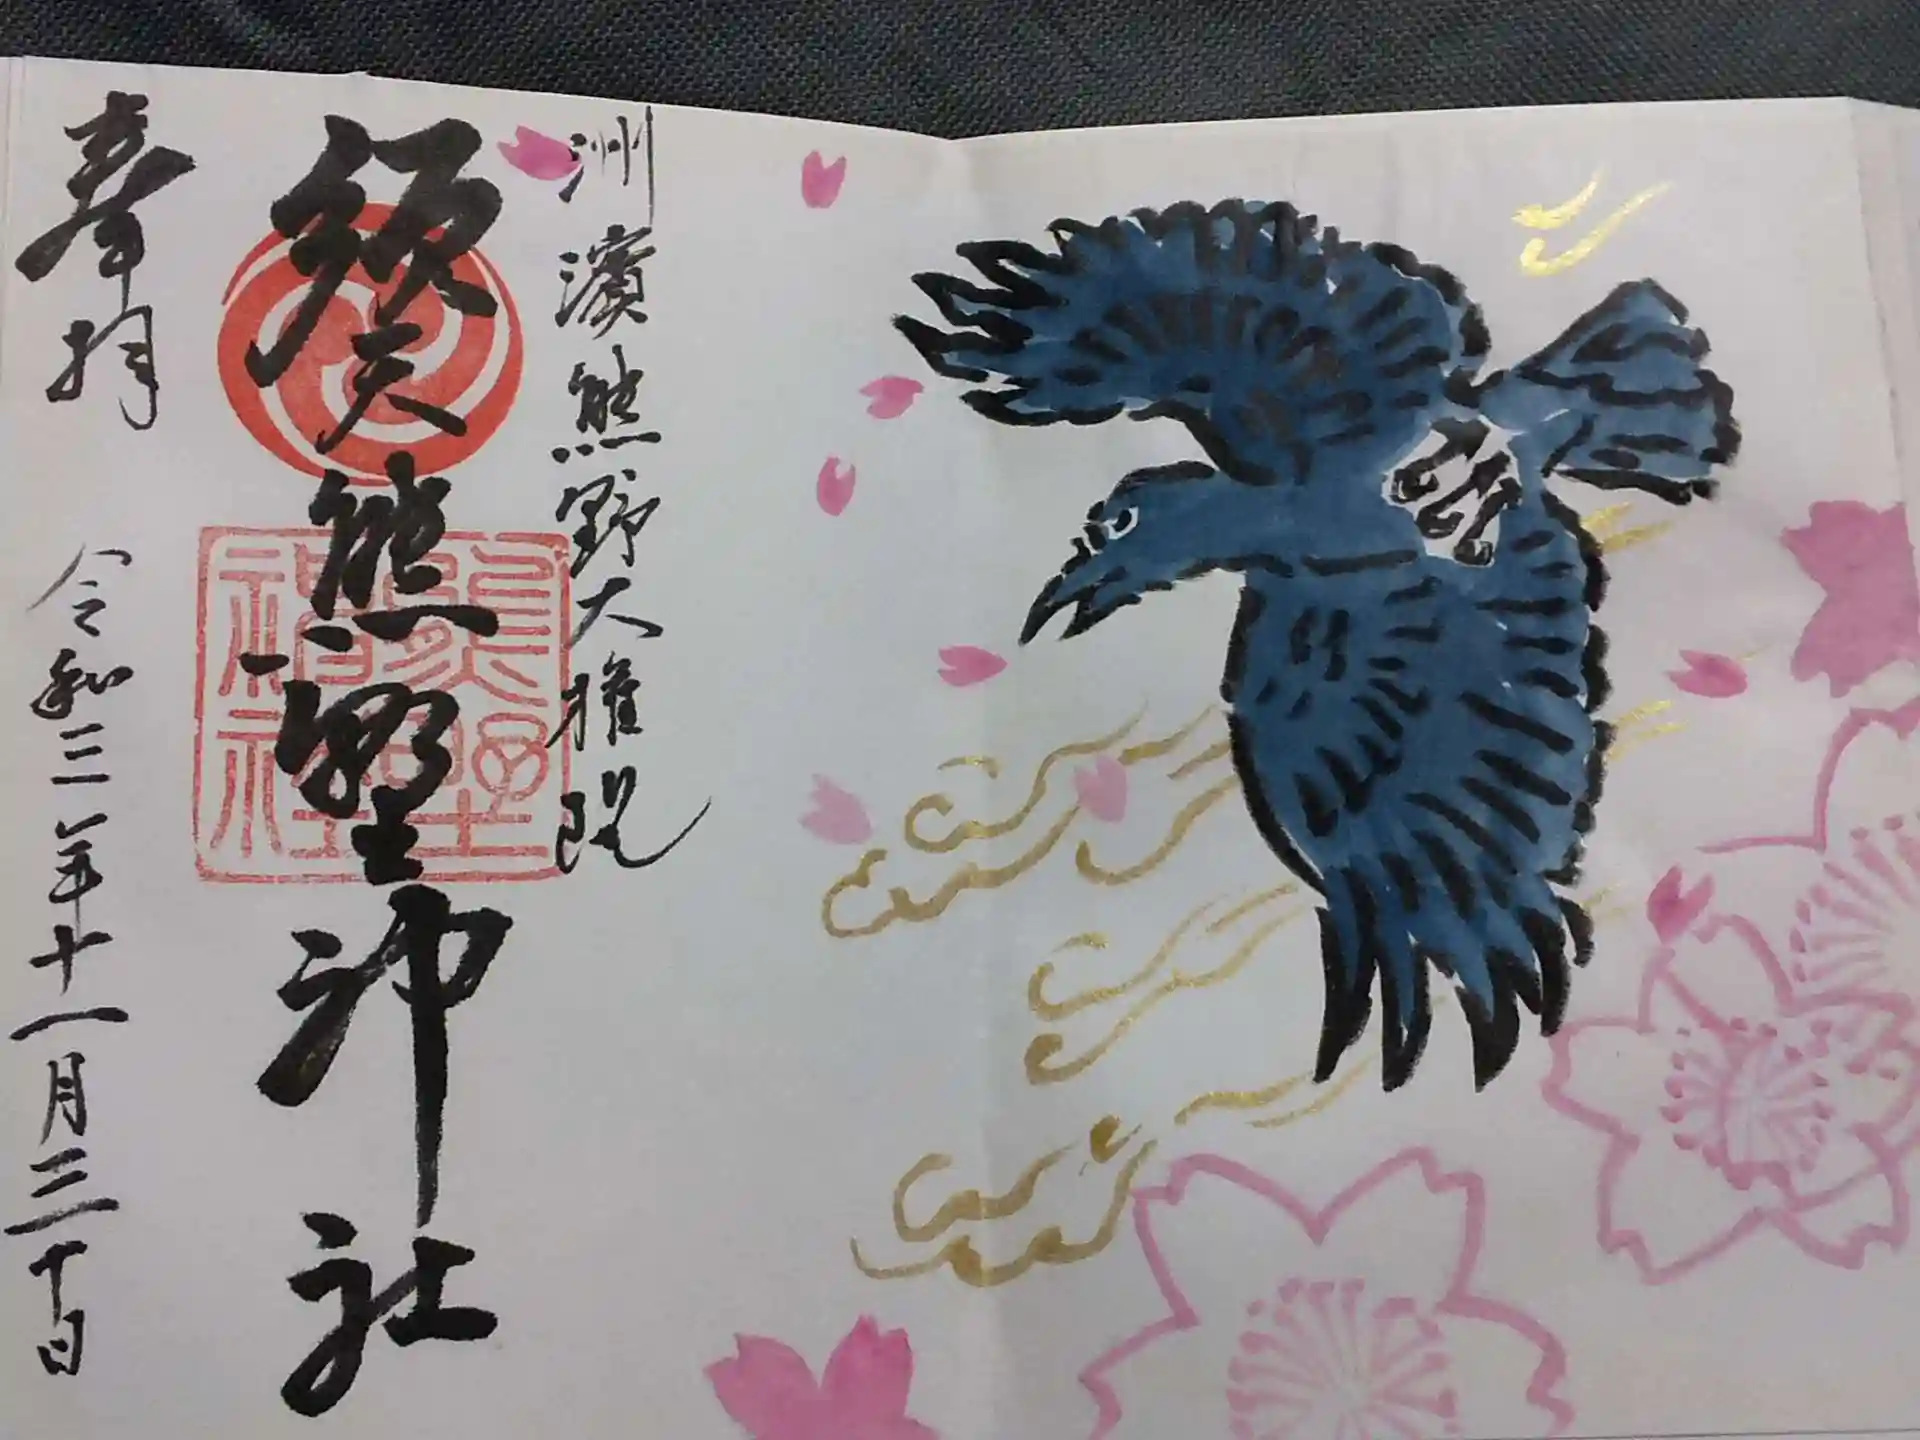 洲濱熊野大権現
須天熊野神社
熊野神社
奉拝
令和三年十一月三十日